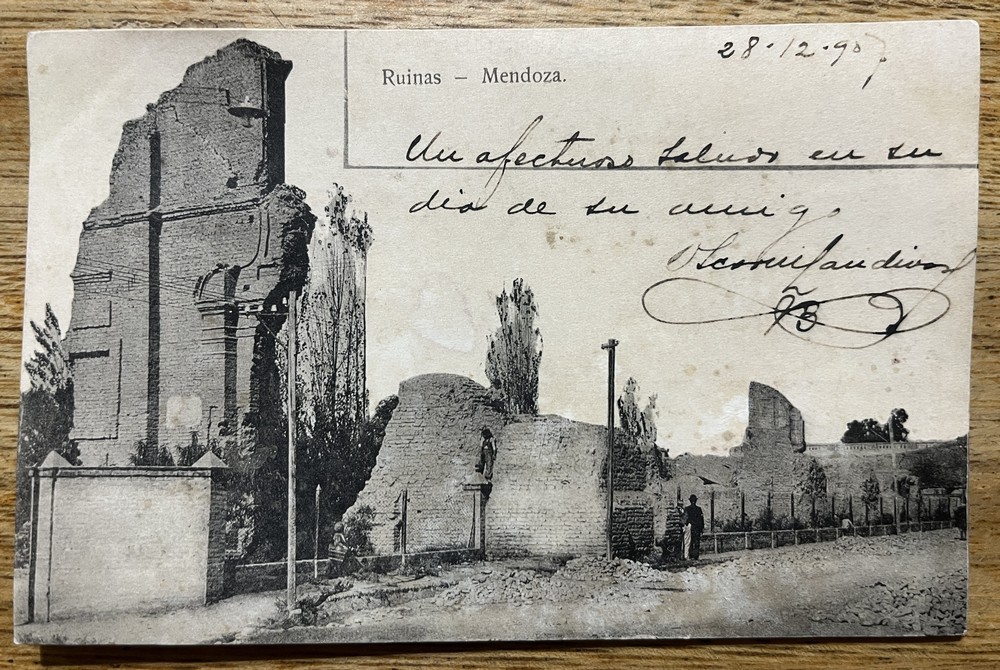 28-12-907
Ruinas – Mendoza.
Un afectuoso saludo en su
dia de su amigo